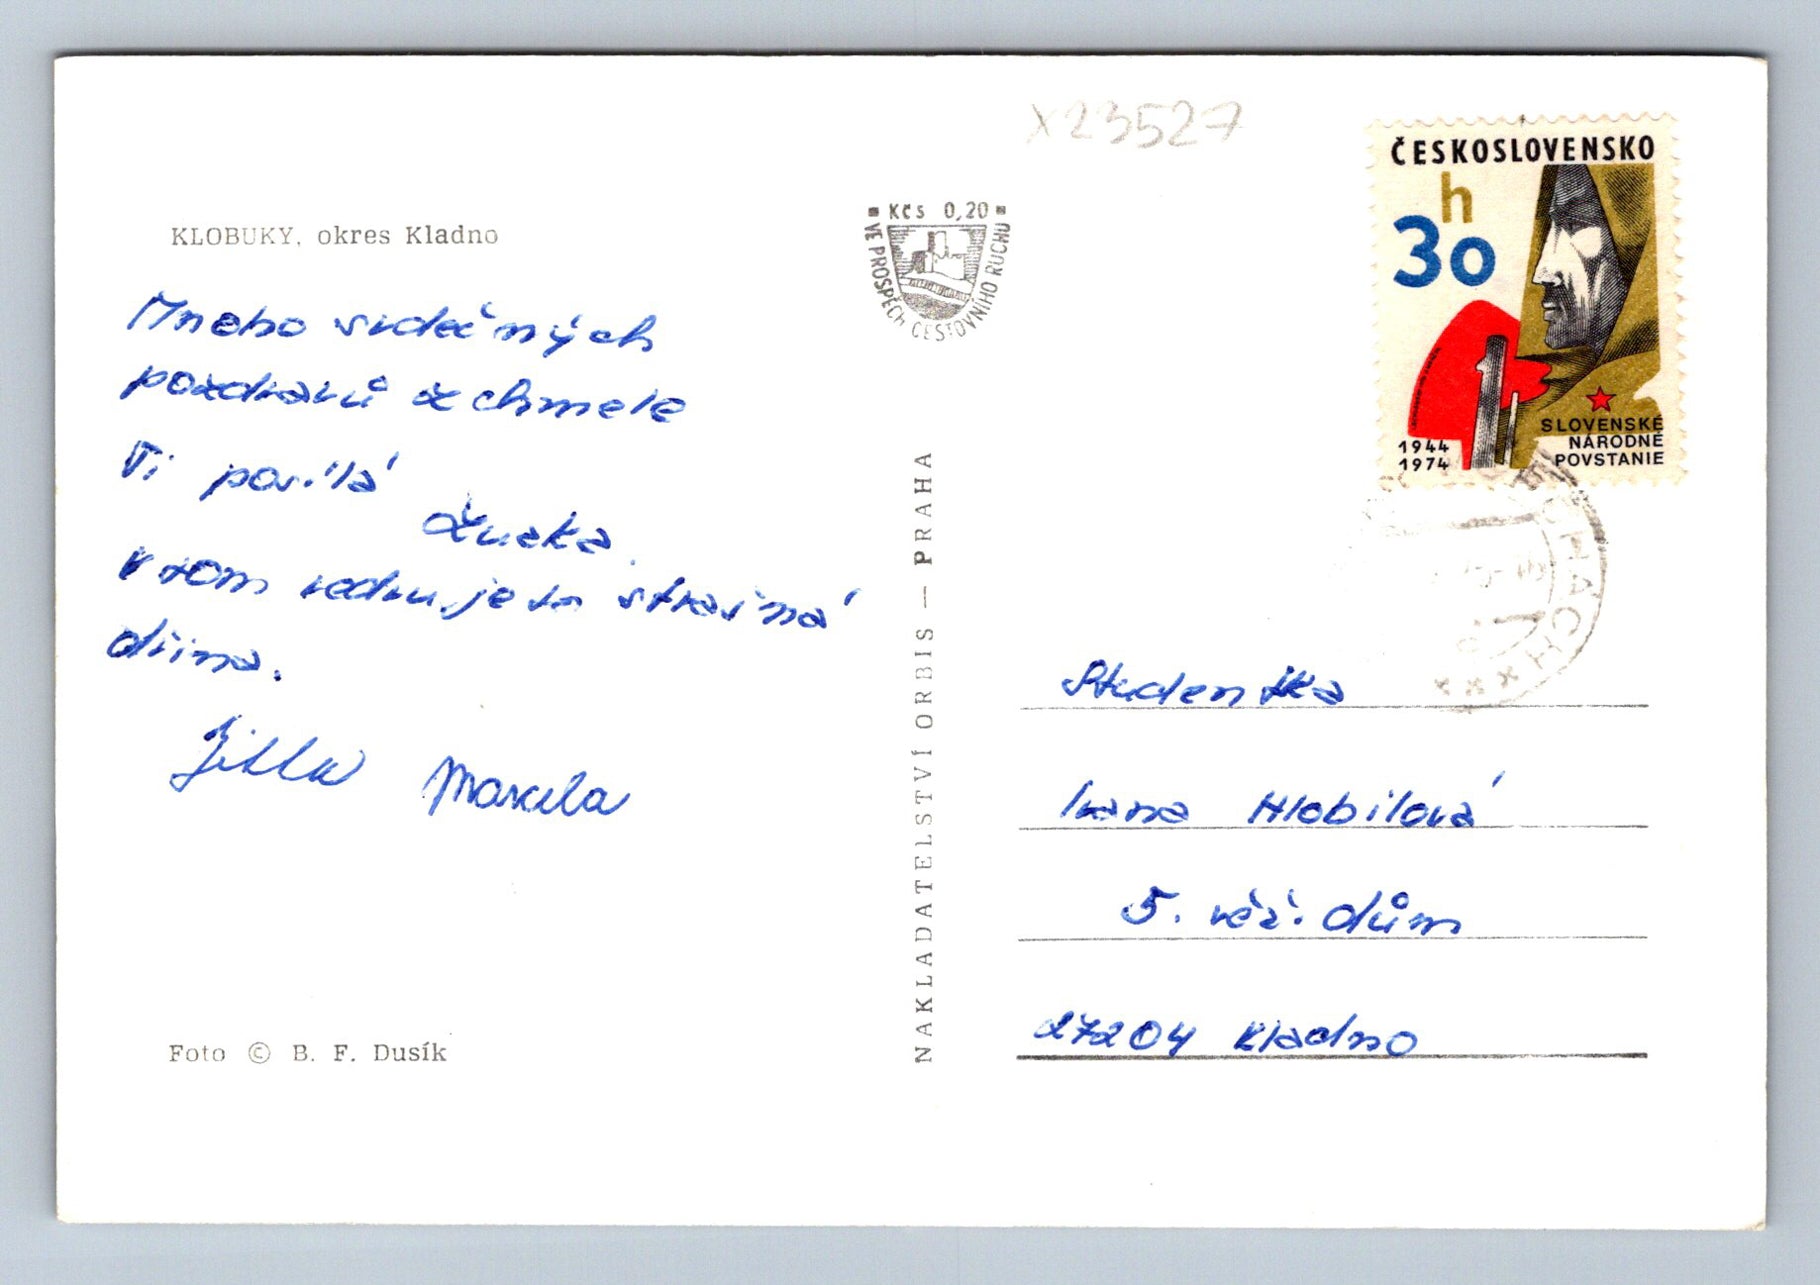 x23527
KLOBUKY, okres Kladno
Mnoho srdečných
pozdravů z chmele
Ti posílá
Zuzka.
V tom vedru, je to strašná
dřina.
Jitka Marcela
Foto © B. F. Dusík
NAKLADATELSTVÍ ORBIS — PRAHA
Kčs 0,20
VE PROSPĚCH CESTOVNÍHO RUCHU
ČESKOSLOVENSKO
h
30
1944
1974
SLOVENSKÉ
NÁRODNÉ
POVSTANIE
Studentka
Ivana Hlobilová
5. věž. dům
27204 Kladno